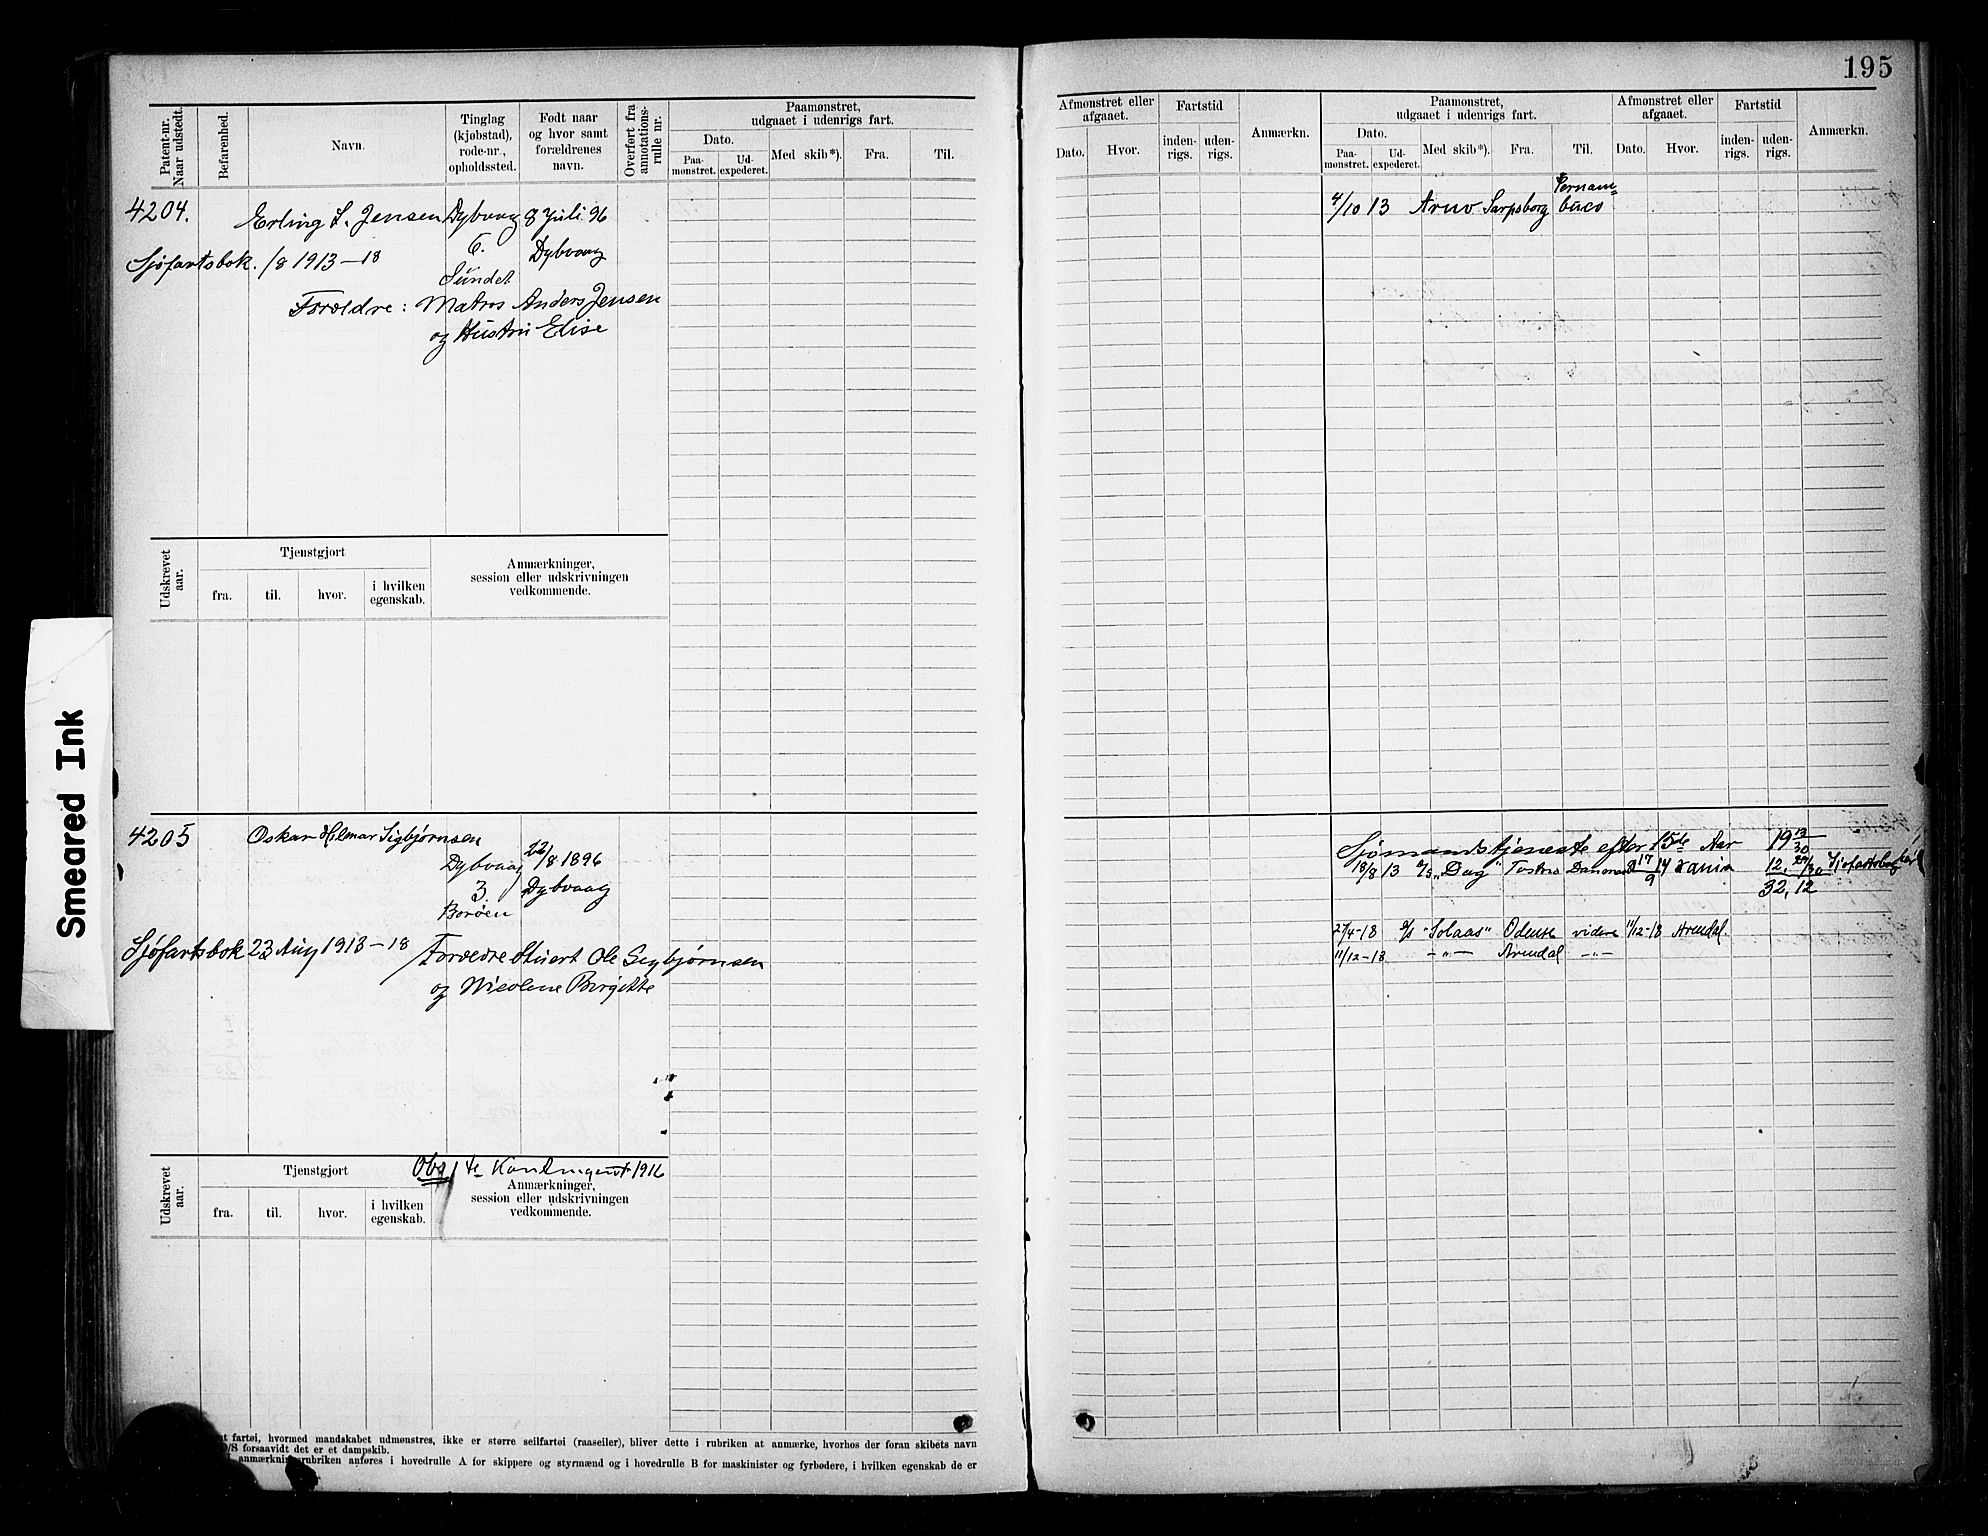 195
Patent-nr. Naar udstedt.
Befarenhed.
Navn.
Tinglag (kjøbstad), rode-nr., opholdssted.
Født naar og hvor samt forældrenes navn.
Overført fra annotations-rulle nr.
Paamønstret, udgaaet i udenrigs fart.
Dato.
Paa-mønstret.
Ud-expederet.
Med skib*).
Fra.
Til.
Afmønstret eller afgaaet.
Dato.
Hvor.
Fartstid
inden-rigs.
uden-rigs.
Anmærkn.
Paamønstret, udgaaet i udenrigs fart.
Dato.
Paa-mønstret.
Ud-expederet.
Med skib*).
Fra.
Til.
Afmønstret eller afgaaet.
Dato.
Hvor.
Fartstid
inden-rigs.
uden-rigs.
Anmærkn.
4204.
Erling L. Jensen Dybvaag 8 Juli 96
6. Dybvaag
Sjøfartsbok. /8 1913-18
Sundet
Forældre: Matros Anders Jensen
og Hustru Elise
4/10 13 Arno Sarpsborg Pernam=
buco
Udskrevet aar.
Tjenstgjort
fra.
til.
hvor.
i hvilken egenskab.
Anmærkninger, session eller udskrivningen vedkommende.
4205
Oskar Hilmar Sigbjørnsen
Dybvaag 22/8 1896
3. Dybvaag
Borøen
Sjøfartsbok 23 Aug 1913-18
Forældre Stuert Ole Sigbjørnsen
og Nicoline Birgitte
Sjømandstjeneste efter 15de Aar 19 13/30
18/8 13 "Dag" 17/9 14
32,12
27/4-18 "Solaas" Odense videre 11/12-18 Arendal.
11/12-18 -"- Arendal -"-
Obs 1te Kontingent 1916
Udskrevet aar.
Tjenstgjort
fra.
til.
hvor.
i hvilken egenskab.
Anmærkninger, session eller udskrivningen vedkommende.
fartøi, hvormed mandskabet udmønstres, ikke er større seilfartøi (raaseiler), bliver dette i rubriken at anmærke, hvorhos der foran skibets navn
D/S forsaavidt det er et dampskib.
anmærkningsrubriken anføres i hovedrulle A for skippere og styrmænd og i hovedrulle B for maskinister og fyrbødere, i hvilken egenskab de er
Smeared Ink